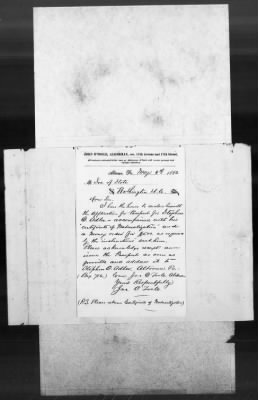 JOHN O'TOOLE, ALDERMAN, cor. 11th Avenue and 17th Street.
Altoona Pa. May 4th 1882
Sec. of State
Washington D.C.
Dear Sir:
I have the honor to enclose herewith
the application for Passport for Stephen
C. Adler - accompanied with his
Certificate of Naturalization and
a money order for five as required
by the instructions sent him.
Please acknowledge receipt and
issue the Passport as soon as
possible and address it to
Stephen C. Adler Altoona Pa.
(Box 72.) Care
Yours Respectfully
O'Toole
(P.S. Please return Certificate of Naturalization)